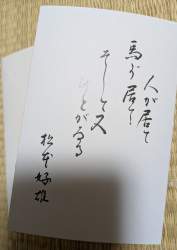 人が居て
馬が居て
そして又
ひとがゐる
松本好雄